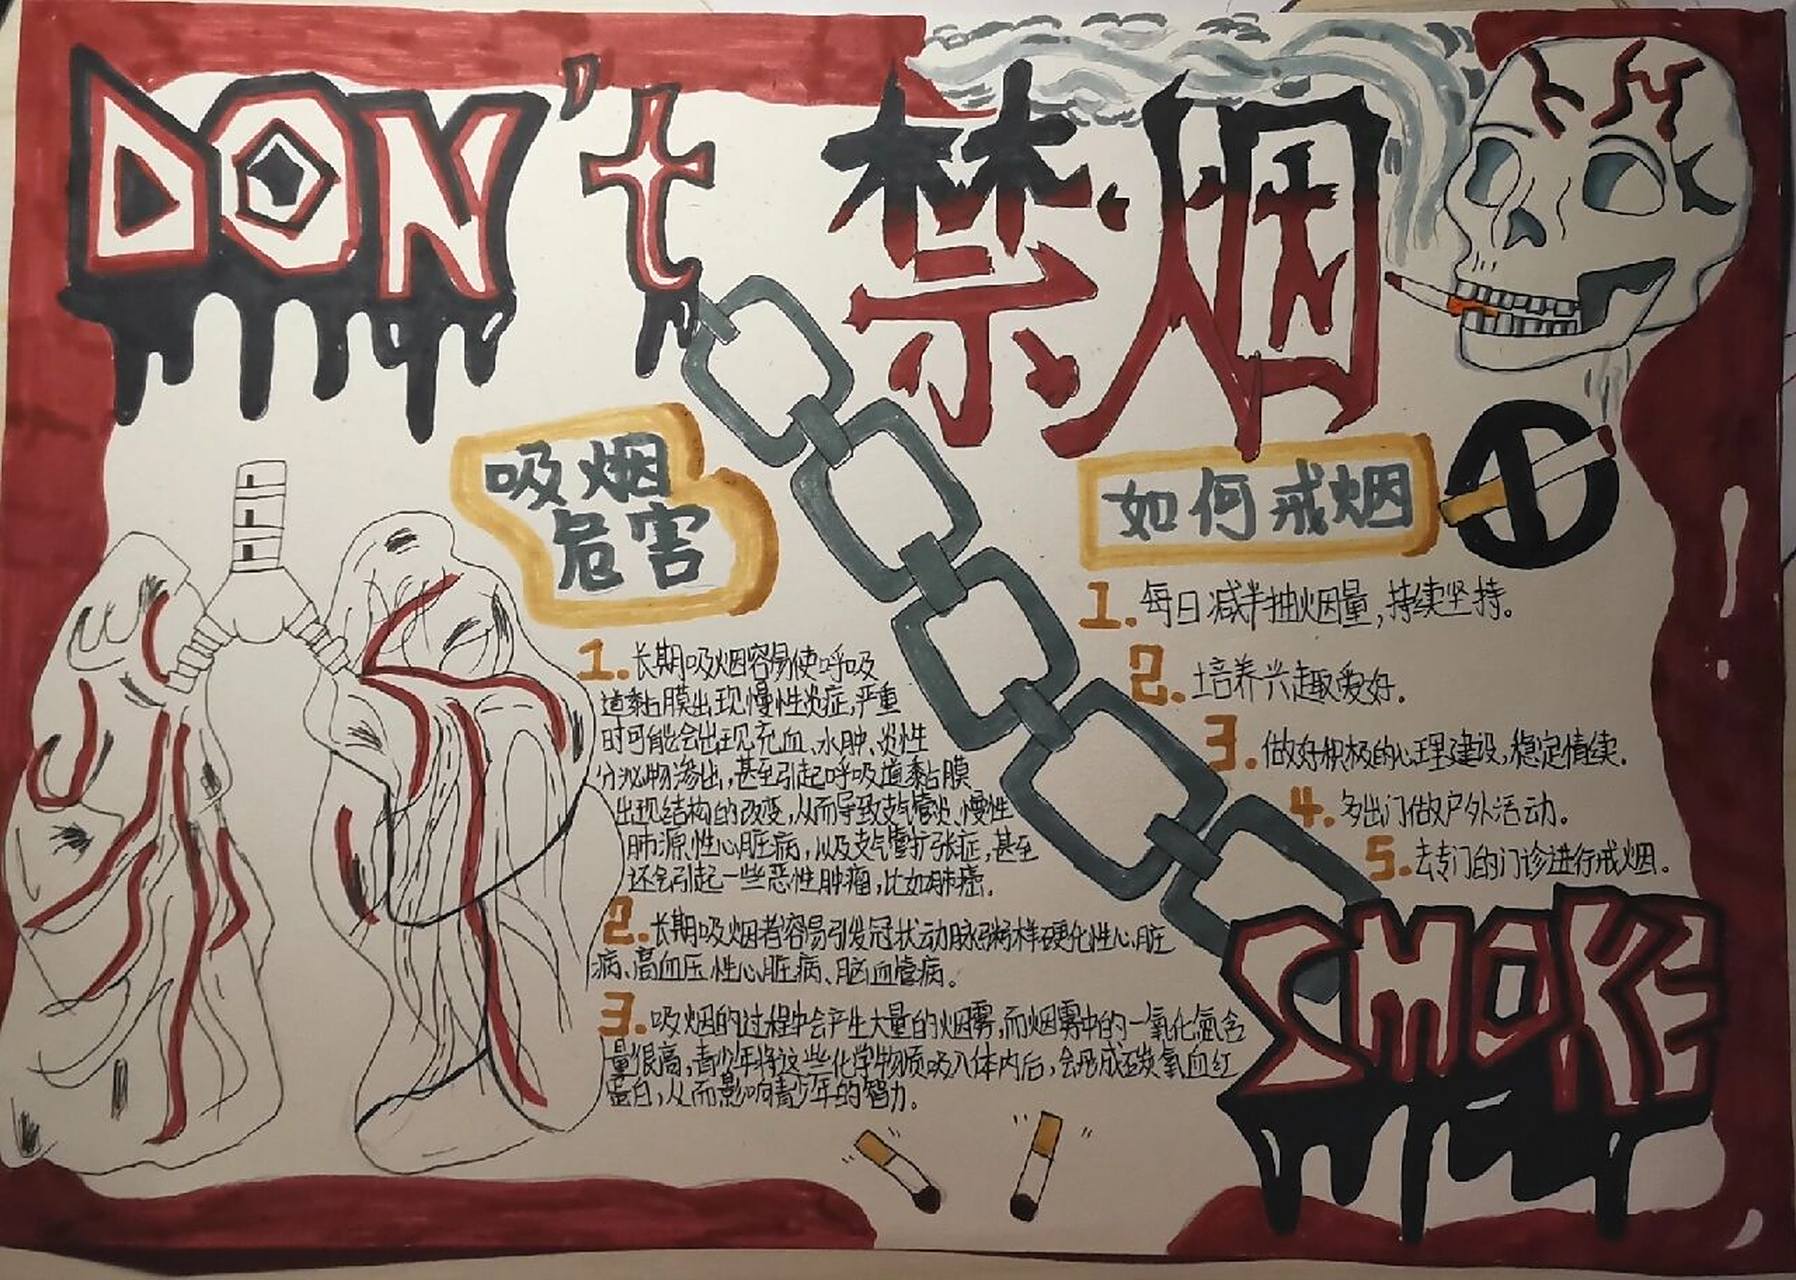 DON't
禁烟
吸烟
危害
1.长期吸烟容易使呼吸
道黏膜出现慢性炎症,严重
时可能会出现充血、水肿、炎性
分泌物渗出,甚至引起呼吸道黏膜
出现结构的改变,从而导致支气管炎、慢性
肺源性心脏病,以及支气管扩张症,甚至
还会引起一些恶性肿瘤,比如肺癌。
2.长期吸烟者容易引发冠状动脉粥样硬化性心脏
病、高血压性心脏病、脑血管病。
3.吸烟的过程中会产生大量的烟雾,而烟雾中的一氧化氮含
量很高,青少年将这些化学物质吸入体内后,会形成碳氧血红
蛋白,从而影响青少年的智力。
如何戒烟
1.每日减半抽烟量,持续坚持。
2.培养兴趣爱好。
3.做好积极的心理建设,稳定情续。
4.多出门做户外活动。
5.去专门的门诊进行戒烟。
SMOKE